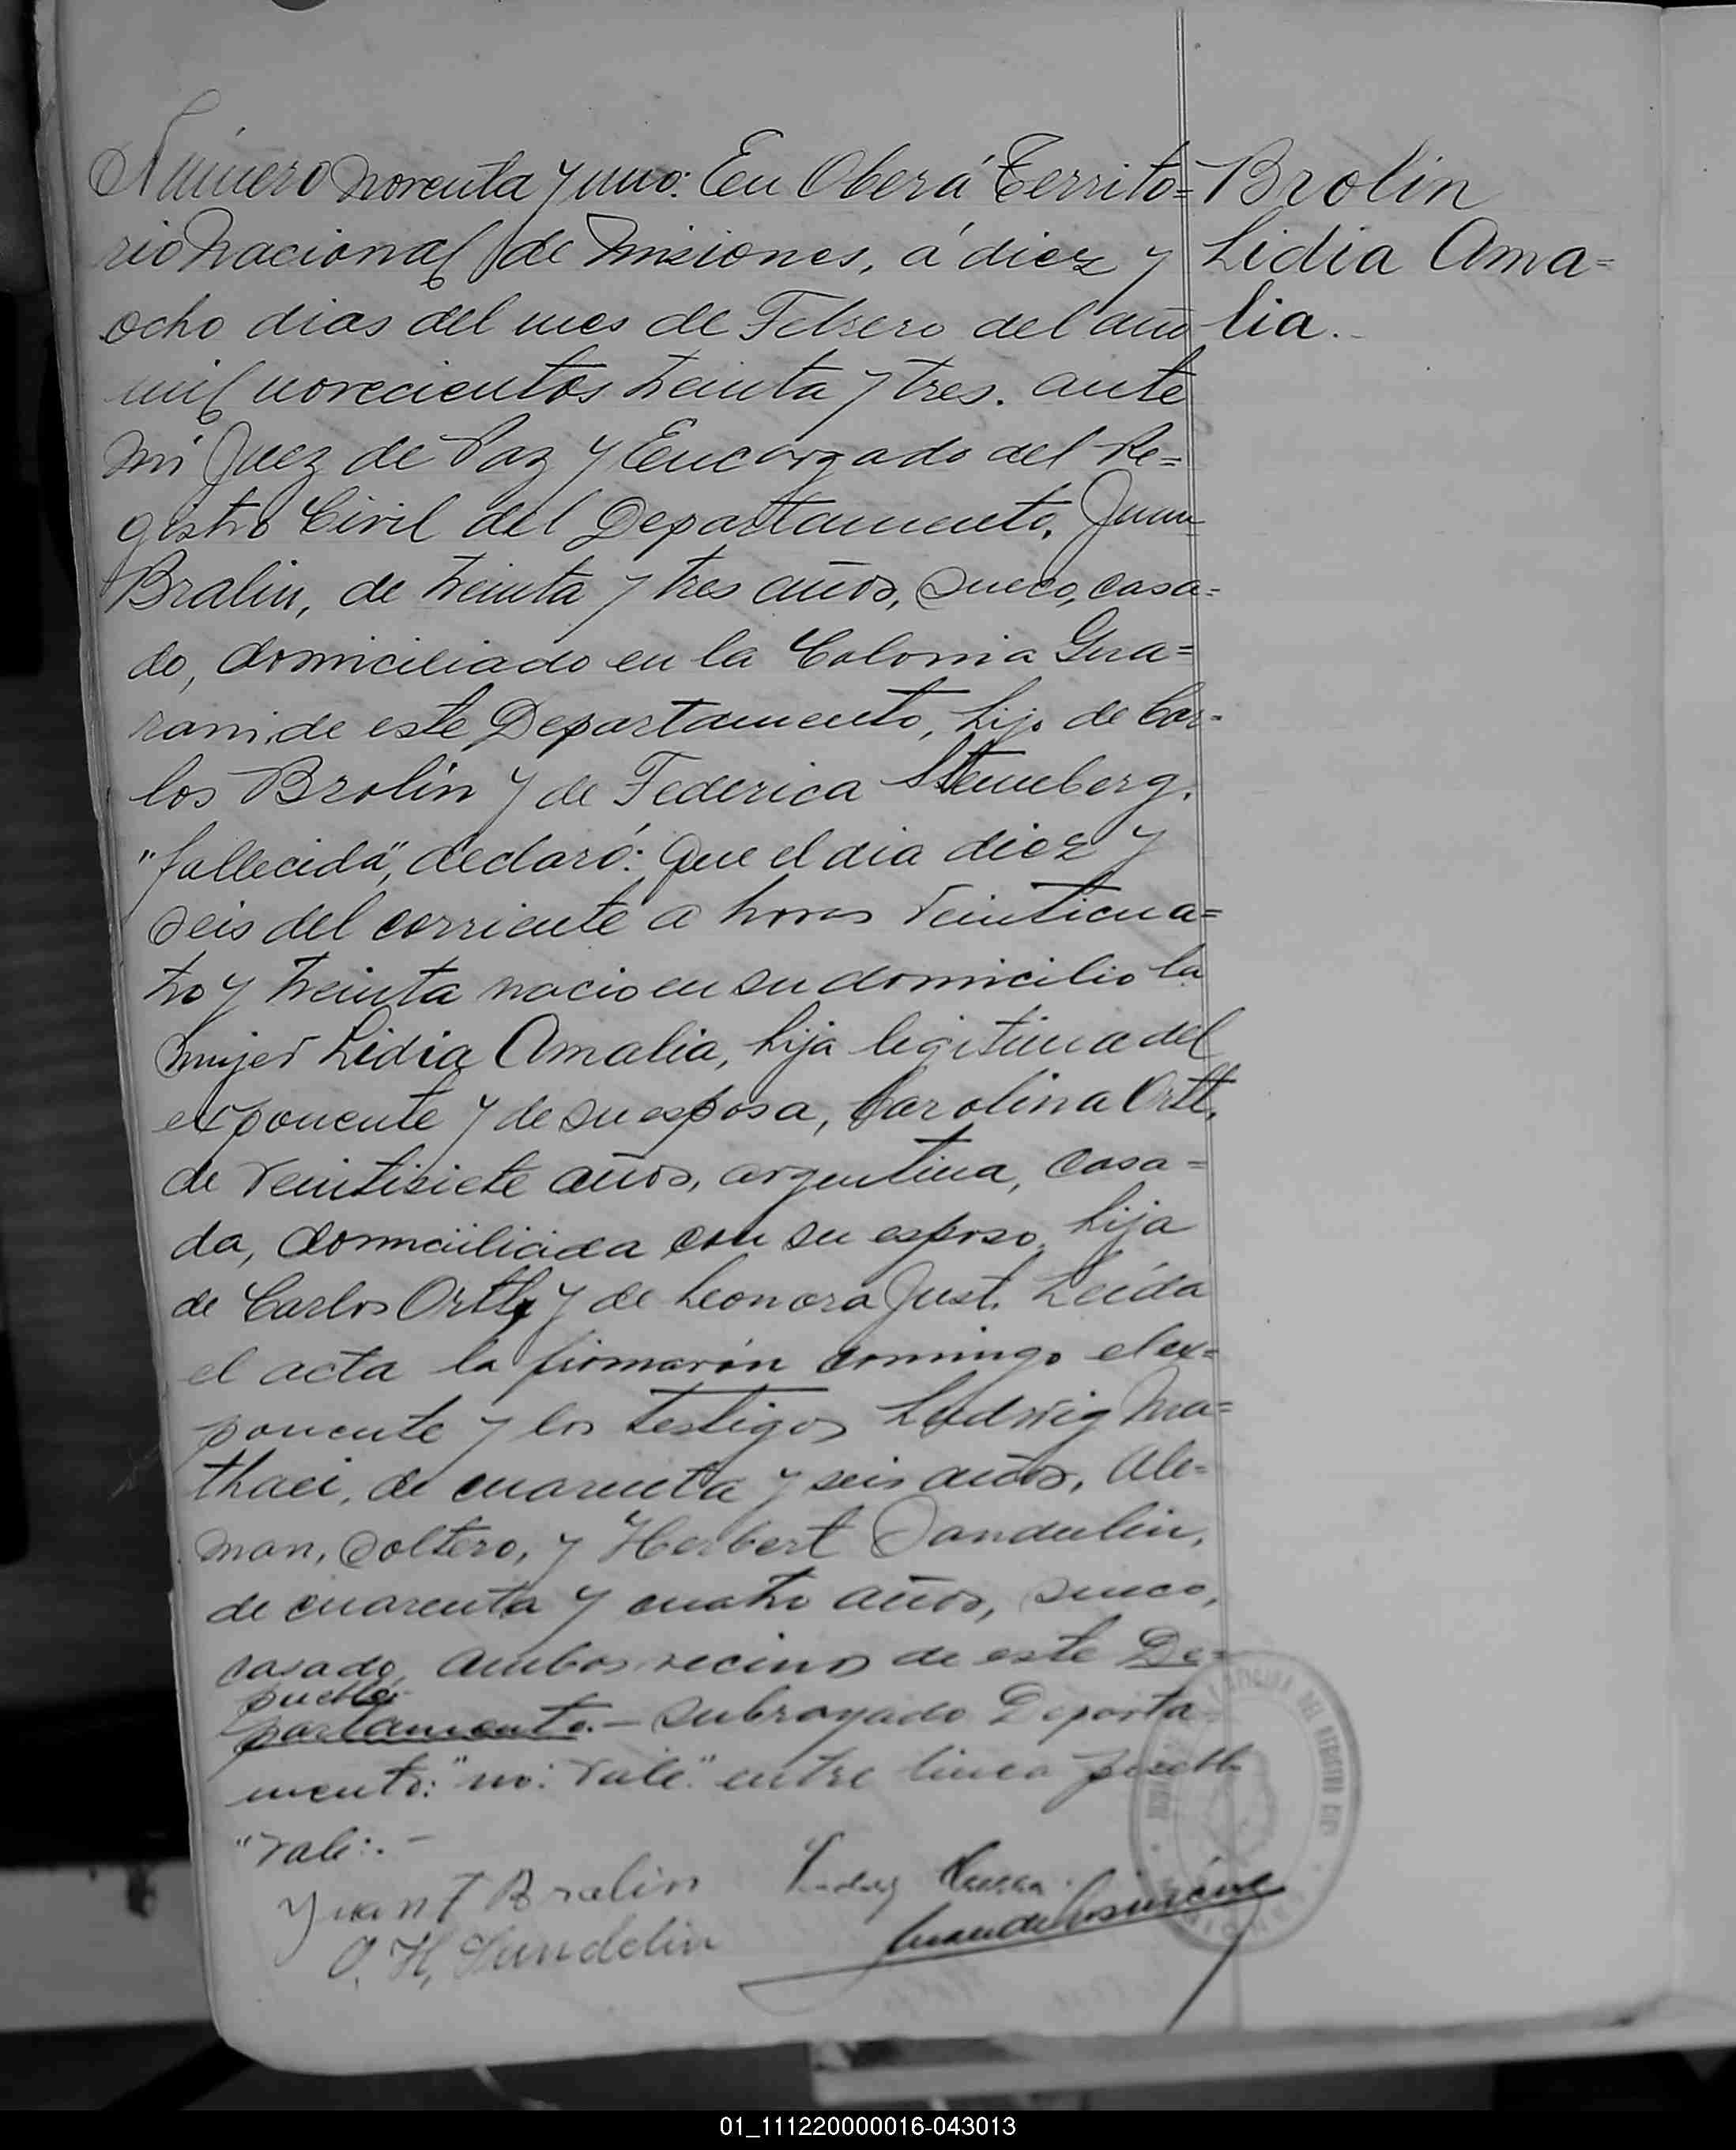 Número noventa y uno: En Oberá Territo=
rio Nacional de Misiones, á diez y
ocho dias del mes de Febrero del año
mil novecientos treinta y tres. ante
mi Juez de Paz y Encargado del Re=
gistro Civil del Departamento, Juan
Bralin, de treinta y tres años, sueco, casa=
do, domiciliado en la Colonia Gua=
rani, de este Departamento, hijo de Car=
los Brolin y de Federica Stenneberg.
"fallecida", declaró: Que el dia diez y
seis del corriente a horas veinticua=
tro y treinta nacio en su domicilio la
mujer Lidia Amalia, hija legitima del
exponente y de su esposa, Carolina Ortt,
de veintisiete años, argentina, casa=
da, domiciliada con su esposo, hija
de Carlos Ortt y de Leonora Just. Leida
el acta la firmarón conmigo el ex=
ponente y los testigos Ludwig Ma=
thaei, de cuarenta y seis años, Ale=
man, soltero, y Herbert Sandelin,
de cuarenta y cuatro años, sueco,
casado, ambos vecinos de este De=
pueblo.
partamento.— Subrayado Departa
mento: "no: vale" entre linea pueblo
"vale:.—
Brolin
Lidia Ama=
lia.
Juan F Bralin
O. H. Sundelin
01_111220000016-043013